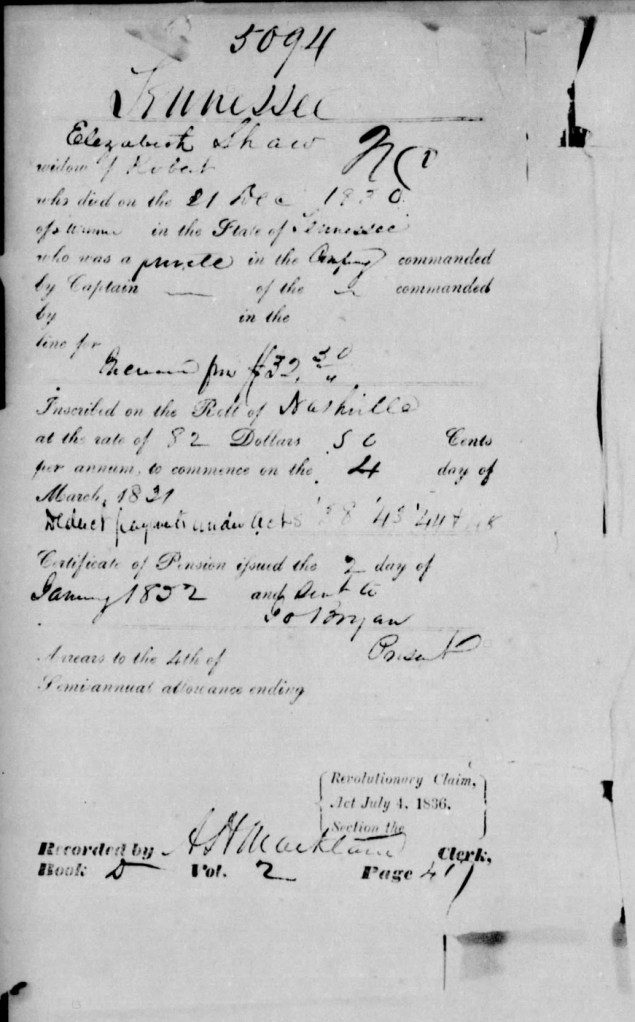 5094
Tennessee
Elizabeth Shaw
widow of Robert
who died on the 21 Dec 1830
in the State of Tennessee
who was a private in the Company commanded
by Captain — of the commanded
by in the
line for
Increase from $32.50
Inscribed on the Roll of Nashville
at the rate of 82 Dollars 50 Cents
per annum, to commence on the 4 day of
March, 1831
Deduct payments under acts '38 '43 '44 + 48
Certificate of Pension issued the 2 day of
January 1852 and sent to
Jo Bryan
Present
Arrears to the 4th of
Semi-annual allowance ending
Revolutionary Claim,
Act July 4, 1836,
Section the
Recorded by Clerk,
Book D Vol. 2 Page